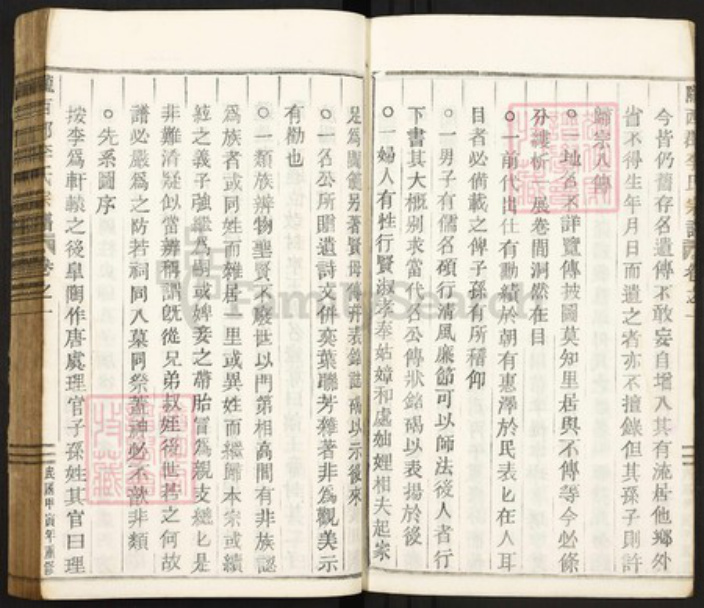 隴西郡李氏宗譜 卷之一
今皆仍舊存名遺傳不敢妄自增入其有流居他鄉外
省不得生年月日而遺之者亦不擅錄但其孫子則許
歸宗入傳
○一地名不詳覽傳披圖莫知里居與不傳等今必條
分縷析 展卷間洞然在目
○一前代出仕有勳績於朝有惠澤於民表匕在人耳
目者必備載之俾子孫有所稽仰
○一男子有儒名碩行清風廉節可以師法後人者行
下書其大概別求當代名公傳狀銘碣以表揚於後
○一婦人有性行賢淑孝奉姑嫜和處妯娌相夫起家
足為閫範另著賢母傳并表錄誌碣以示後來
○一名公所贈遺詩文併奕葉聯芳雜著非為觀美示
有勸也
○一類族辨物聖賢不廢世以門第相高間有非族認
為族者或同姓而雜居一里或異姓而繼歸本宗或續
粧之義子強繼為嗣或婢妾之帶胎冒為親支繼匕是
非難清疑似當辨稱謂旣從兄弟叔姪後世若之何故
譜必嚴為之防若祠同入墓同祭蓋神必不歆非類
○先系圖序
按李為軒轅之後臯陶作唐虞理官子孫姓其官曰理
隴西郡李氏宗譜 卷之一
民國甲寅年重修
FamilySearch